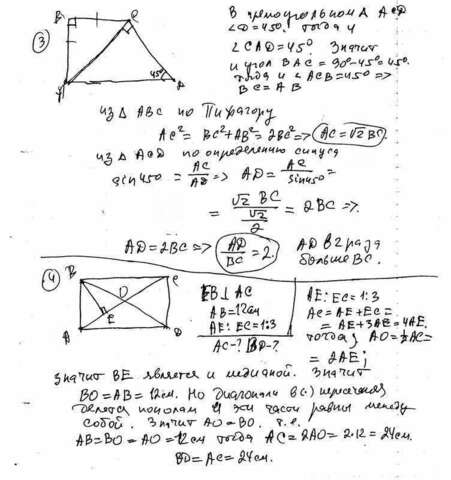 В прямоугольном Δ ACD
∠D=45°. Тогда и
∠CAD=45°. Значит
и угол BAC = 90°-45°=45°
Тогда и ∠ACB=45° =>
BC = AB
③
B C
A 45° D
из Δ ABC по Пифагору
AC² = BC²+AB² = 2BC² => AC=√2 BC.
из Δ ACD по определению синуса
sin45° = AC/AD => AD = AC/sin45° =
= √2 BC / (√2/2) = 2BC =>.
AD=2BC => AD/BC = 2. AD в 2 раза
больше BC.
④
B C
O
E
A D
EB⊥AC
AB=12см
AE:EC=1:3
AC-? BD-?
AE:EC=1:3
AC = AE+EC =
= AE+3AE = 4AE.
тогда, AO=½AC=
= 2AE;
Значит BE является и медианой. Значит
BO=AB=12см. Но диагонали в(·) пересечения
делятся пополам и эти части равны между
собой. Значит AO=BO. т.е.
AB=BO=AO=12см тогда AC=2AO=2·12=24см.
BD=AC=24см.